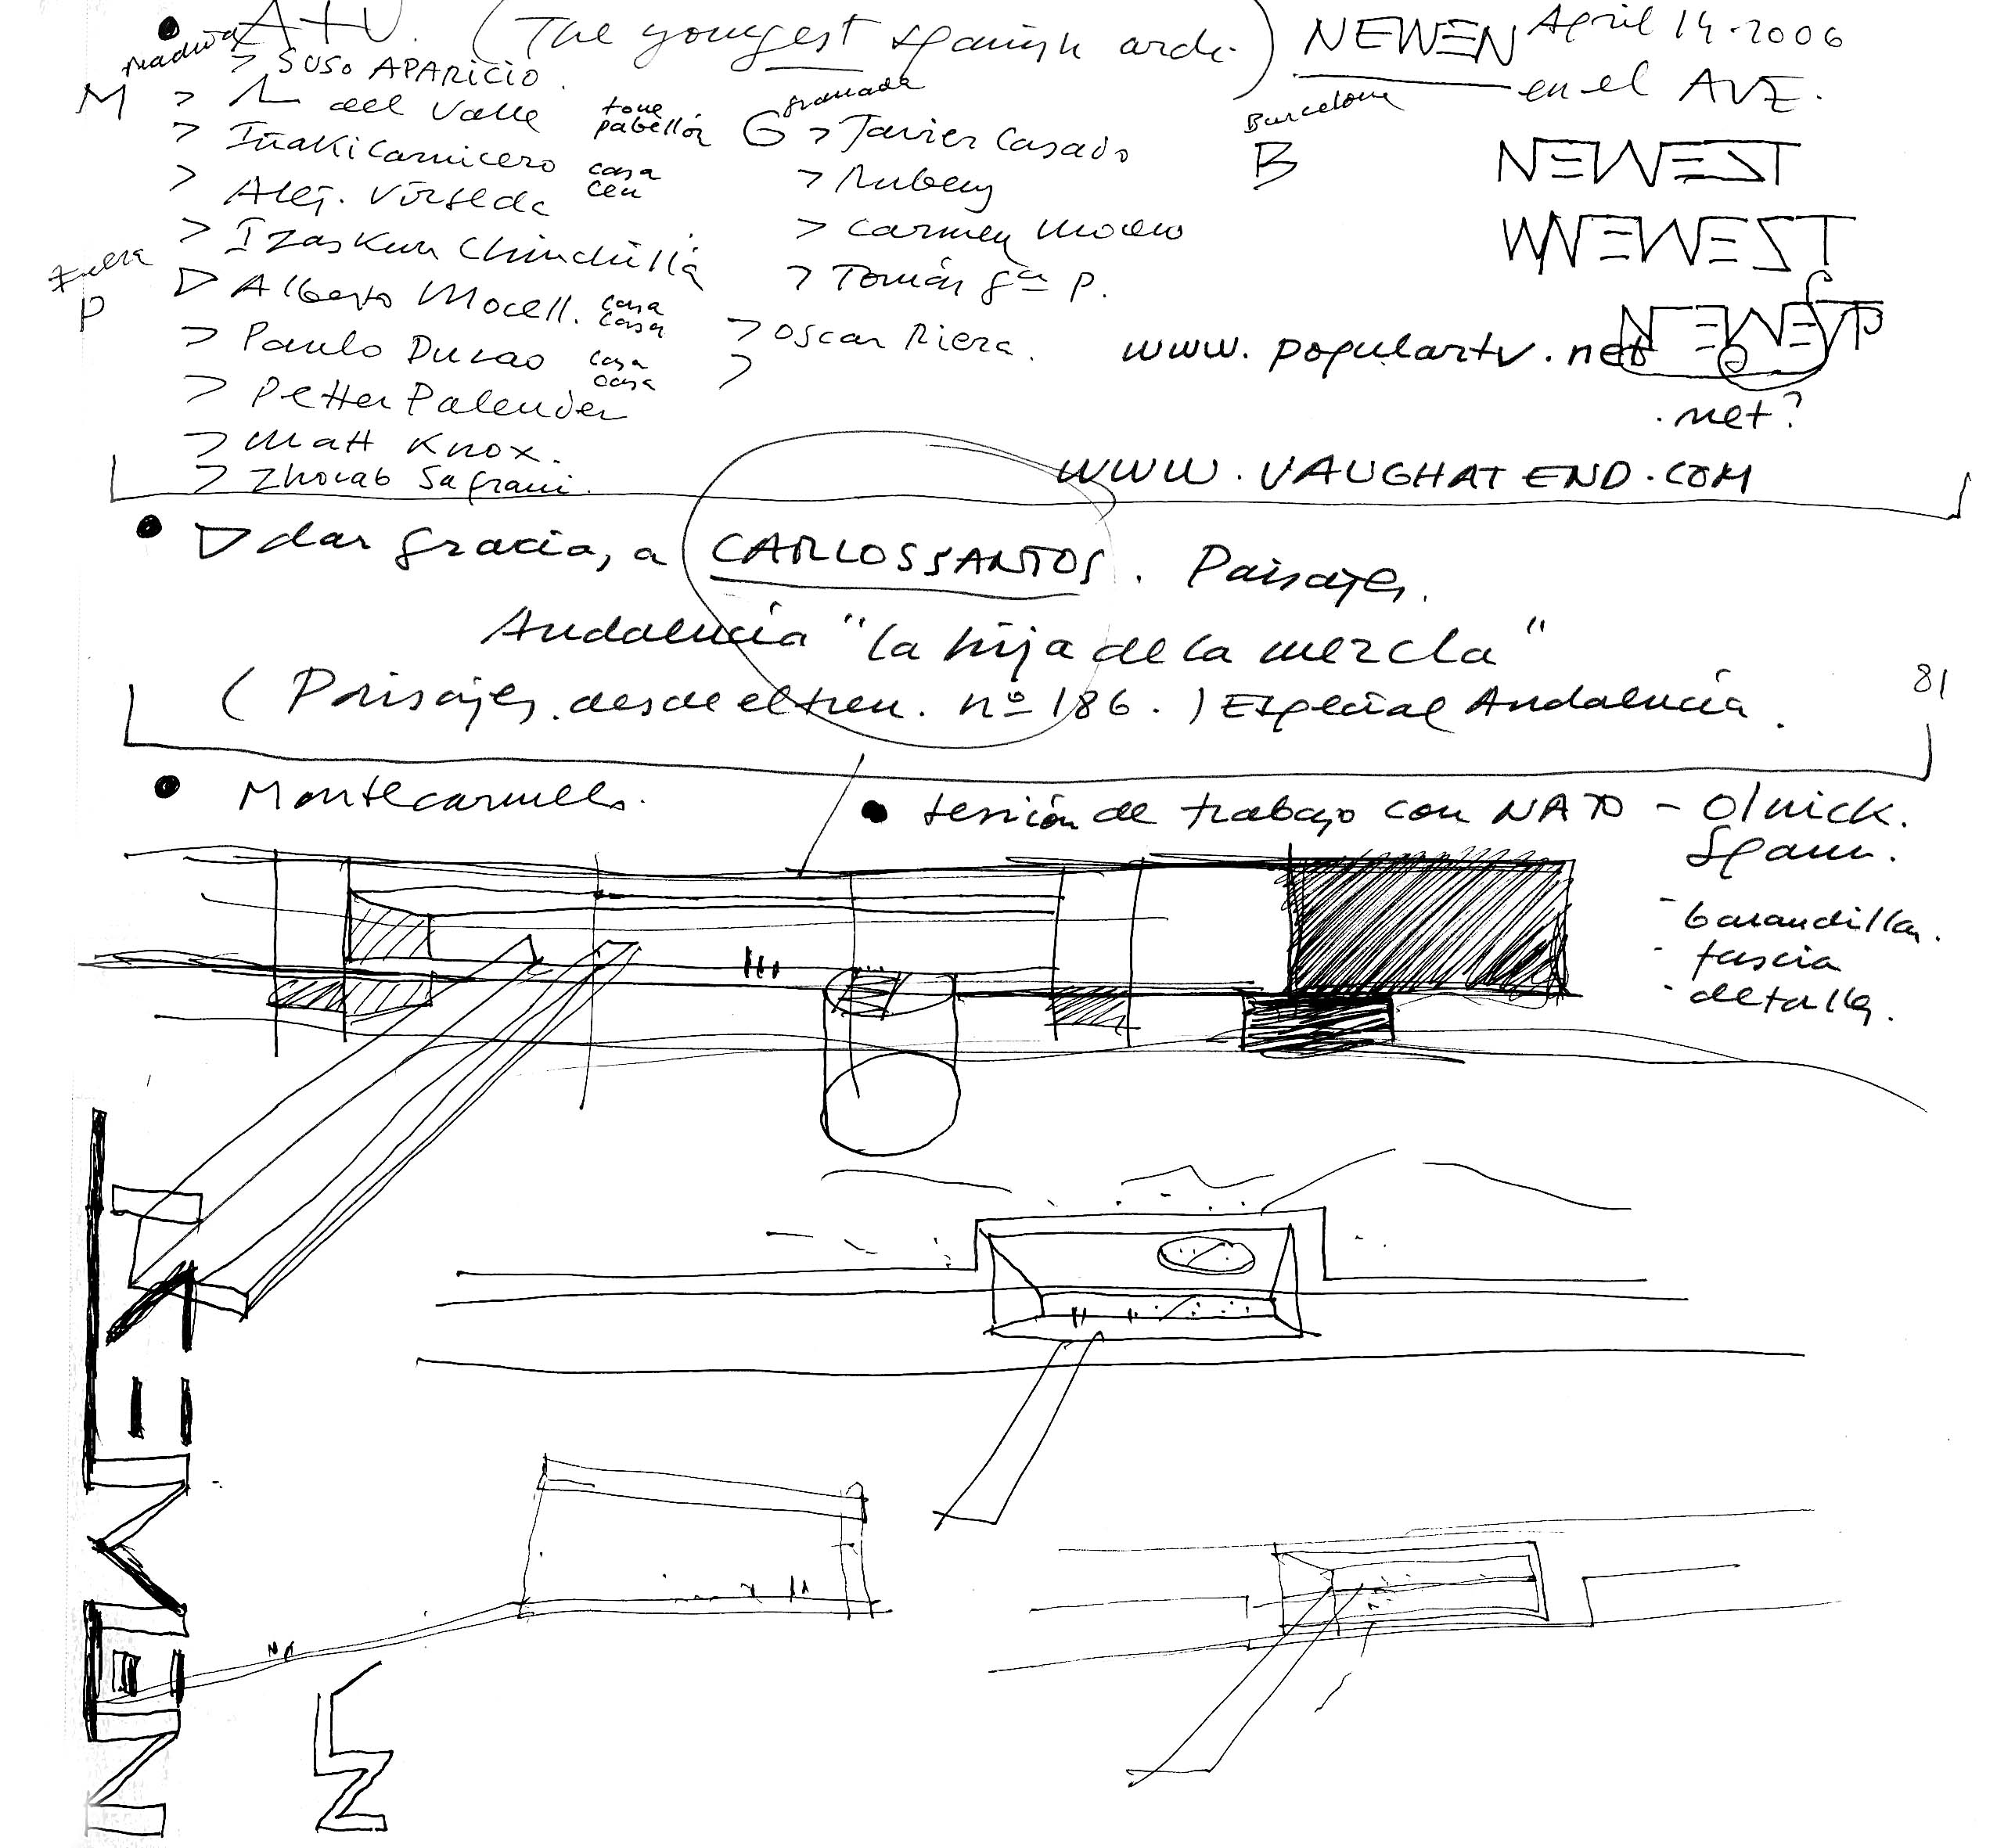 • A+U. (The youngest spanish arch.) NEWEN April 14-2006
en el AVE.
Madrid
M
> SUSO APARICIO.
> del Valle torre pabellón
> Iñaki Carnicero casa
> Alej. Vírseda ceu
> Izaskun Chinchilla
Fuera
P
▷ Alberto Morell. casa casa
> Paulo Durao casa
> Petter Palender casa
> Matt Knox.
> Zhorab Safrani.
Granada
G > Javier Casado
> Rubens
> Carmen Moreno
> Tomás Gª P.
> Oscar Riera.
>
Barcelona
B
NEWEST
WNEWEST
NEWEST
www.populartv.net
.net?
WWW.VAUGHATEND.COM
• ▷ dar gracias a CARLOS SANTOS. Paisajes.
Andalucía "la hija de la mezcla"
(Paisajes desde el tren. nº 186.) Especial Andalucía.
81
• Montecarmelo.
• sesión de trabajo con NATO - Olnick.
Spanu.
- barandillas.
- fascia
- detalles.
NEWEST